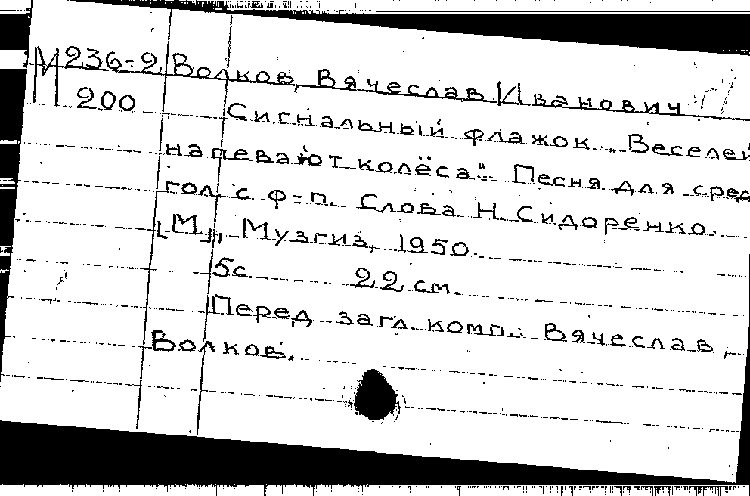 М 236-2 Волков, Вячеслав Иванович
200
Сигнальный флажок. „Веселей
напевают колёса“. Песня для сред.
гол. с ф-п. Слова Н. Сидоренко.
[М.], Музгиз, 1950.
5с. 22 см.
Перед загл. комп.: Вячеслав
Волков.